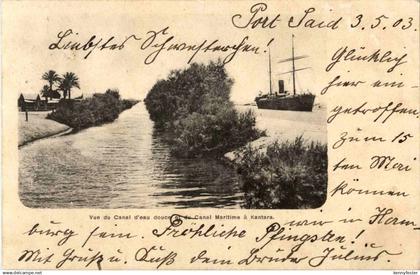 Port Said 3.5.03.
Liebstes Schwesterchen!
Glücklich
hier ein-
getroffen,
zum 15
ten Mai
können
Vue du Canal d'eau douce et du Canal Maritime à Kantara.
wir in Ham-
burg sein. Fröhliche Pfingsten!
Mit Gruß u. Kuß Dein Bruder Julius.
delcampe.net